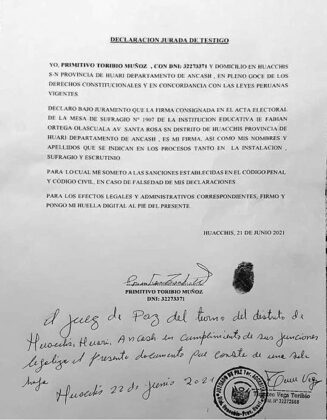 DECLARACION JURADA DE TESTIGO
YO, PRIMITIVO TORIBIO MUÑOZ , CON DNI: 32273371 Y DOMICILIO EN HUACCHIS
S-N PROVINCIA DE HUARI DEPARTAMENTO DE ANCASH , EN PLENO GOCE DE LOS
DERECHOS CONSTITUCIONALES Y EN CONCORDANCIA CON LAS LEYES PERUANAS
VIGENTES
DECLARO BAJO JURAMENTO QUE LA FIRMA CONSIGNADA EN EL ACTA ELECTORAL
DE LA MESA DE SUFRAGIO Nº 1907 DE LA INSTITUCION EDUCATIVA IE FABIAN
ORTEGA OLASCUALA AV SANTA ROSA SN DISTRITO DE HUACCHIS PROVINCIA DE
HUARI DEPARTAMENTO DE ANCASH , ES MI FIRMA, ASI COMO MIS NOMBRES Y
APELLIDOS QUE SE INDICAN EN LOS PROCESOS TANTO EN LA INSTALACION ,
SUFRAGIO Y ESCRUTINIO
PARA LO CUAL ME SOMETO A LAS SANCIONES ESTABLECIDAS EN EL CÓDIGO PENAL
Y CÓDIGO CIVIL, EN CASO DE FALSEDAD DE MIS DECLARACIONES
PARA LOS EFECTOS LEGALES Y ADMINISTRATIVOS CORRESPONDIENTES, FIRMO Y
PONGO MI HUELLA DIGITAL AL PIE DEL PRESENTE.
HUACCHIS, 21 DE JUNIO 2021
PRIMITIVO TORIBIO MUÑOZ
DNI: 32273371
El Juez de Paz del turno del distrito de
Huacchis, Huari, Ancash en cumplimiento de sus funciones
legaliza el presente documento que consta de una sola
hoja
Huacchis 22 de Junio 2021
Vega Toribio